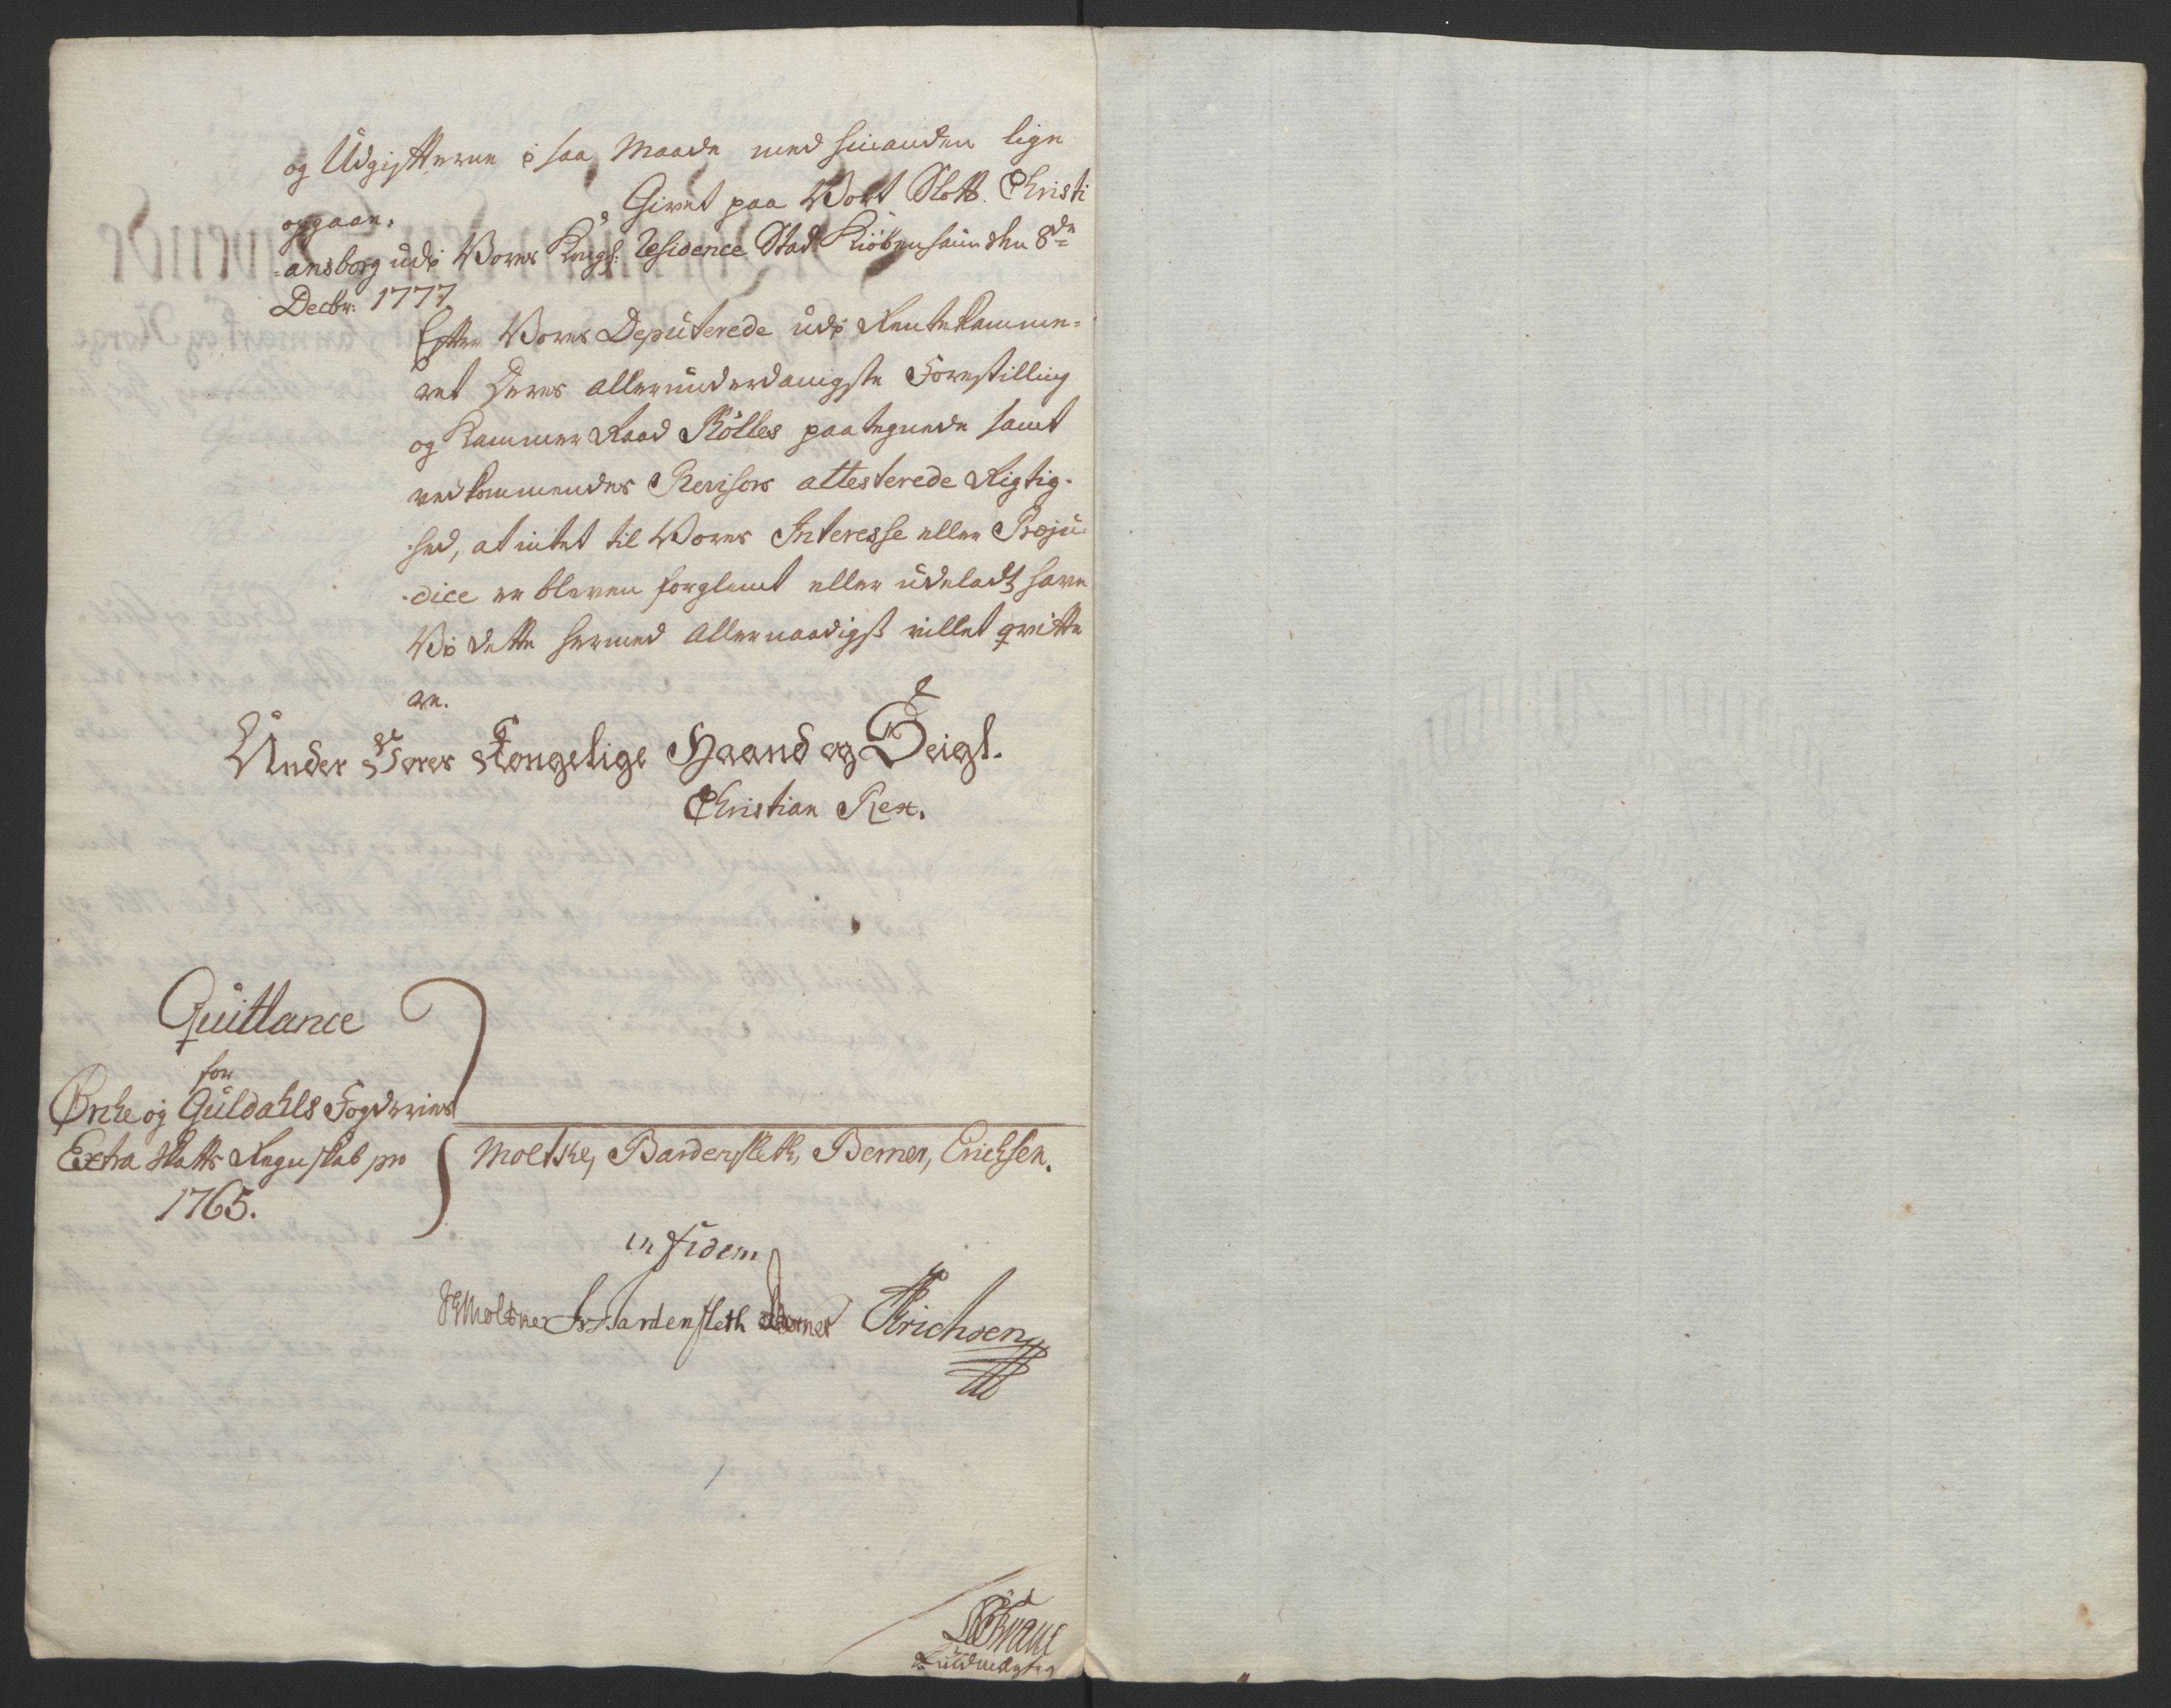 og Udgifterne i saa Maade med hinanden lige
opgaae.
Givet paa Vort Slott Christi
-ansborg udi Vores Kongl: Residence Stad Kiöbenhaun den 8de
Decbr: 1777
Efter Vores Deputerede udi Rentekamme-
ret Deres allerunderdanigste Forestilling
og Kammer Raad Rölles paategnede samt
vedkommendes Revisors attesterede Rigtig-
-hed, at intet til Vores Interesse eller Præju-
-dice er bleven forglemt eller udeladt, have
Vi dette hermed Allernaadigst villet qvitte
re.
Under Vores Kongelige Haand og Seigl.
Christian Rex.
Quittance
for
Örche og Guldahls Fogderies
Extra Skatts Regnskab pro
1765.
Moltke, Bardenfleth, Berner, Erichsen.
in fidem
Moltke Bardenfleth Berner Erichsen